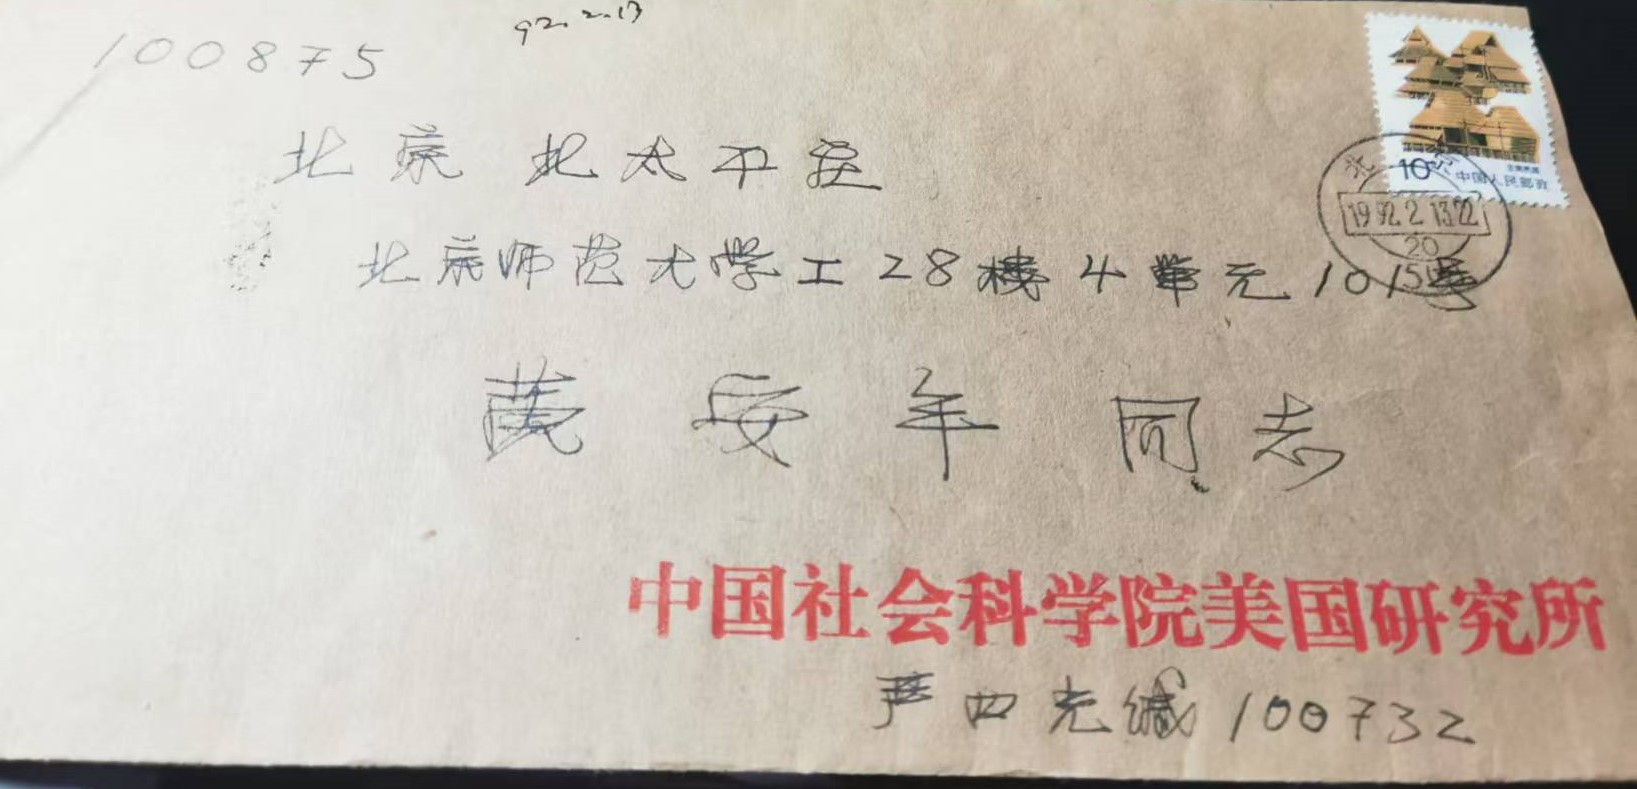 92.2.13
100875
北京 北太平庄
北京师范大学工28楼4单元101号
黄安年 同志
中国社会科学院美国研究所
严四光缄 100732
10
中国人民邮政
北京
1992.2.13.22
20